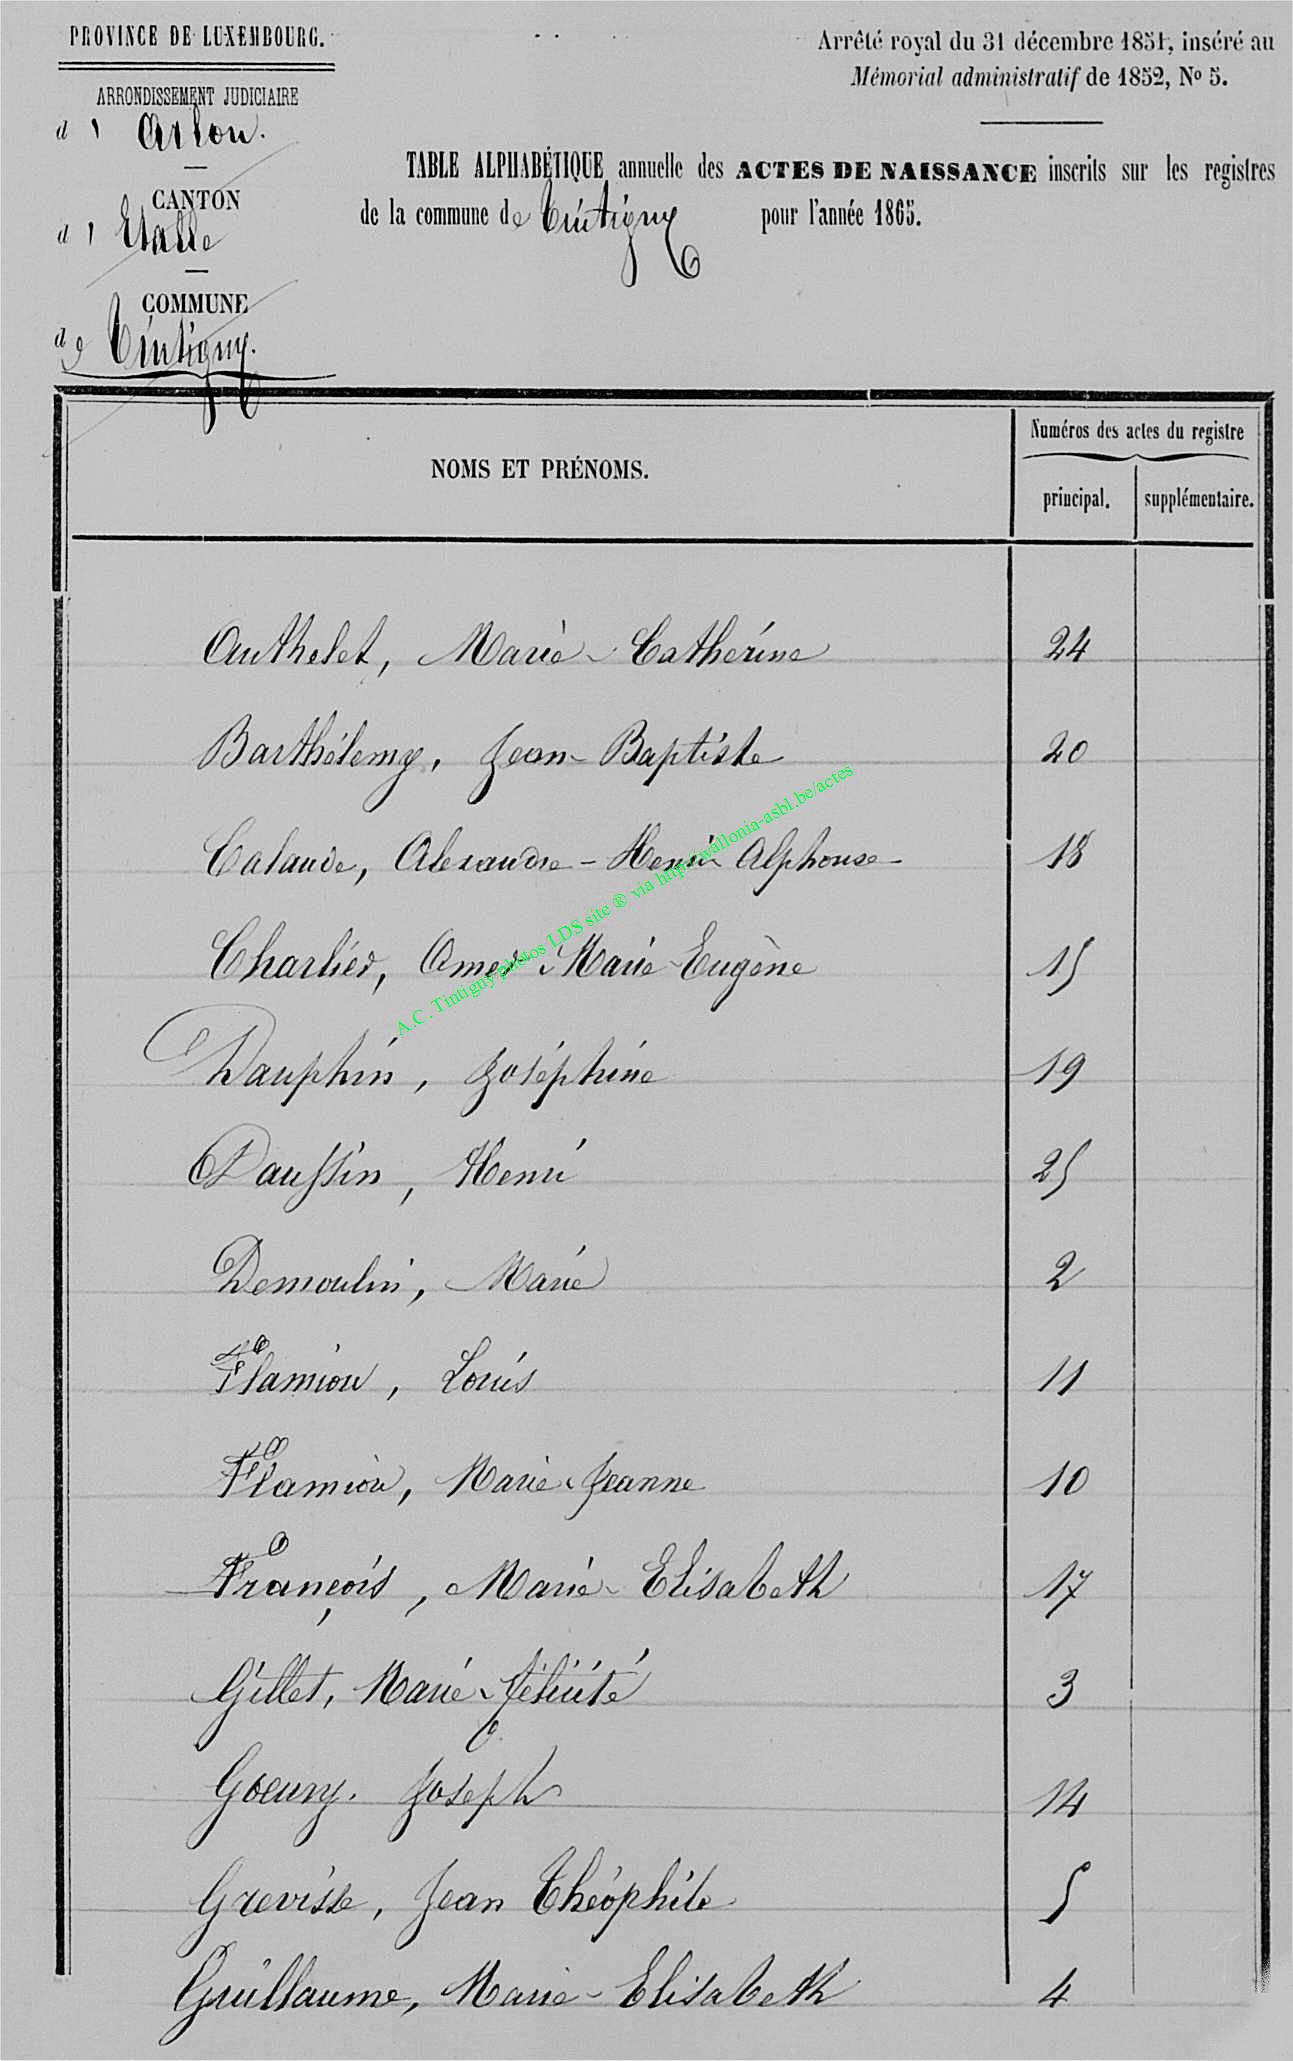 PROVINCE DE LUXEMBOURG.
Arrêté royal du 31 décembre 1851, inséré au
Mémorial administratif de 1852, No 5.
ARRONDISSEMENT JUDICIAIRE
d' Arlon.
CANTON
d' Etalle
COMMUNE
de Tintigny.
TABLE ALPHABÉTIQUE annuelle des ACTES DE NAISSANCE inscrits sur les registres
de la commune de Tintigny pour l'année 1865.
NOMS ET PRÉNOMS.
Numéros des actes du registre
principal. supplémentaire.
Authelet, Marie-Cathérine 24
Barthélemy, Jean-Baptiste 20
Calande, Alexandre-Henri Alphonse 18
Charlier, Marie Eugène 15
Dauphin, Joséphine 19
Daussin, Henri 25
Demoulin, Marie 2
Flamion, Louis 11
Flamion, Marie-Jeanne 10
François, Marie-Elisabeth 17
Gillet, Marie-Félicité 3
Goeury. Joseph 14
Grevisse, Jean Théophile 5
Guillaume, Marie-Elisabeth 4
A.C. Tintigny photos LDS site ® via http://wallonia-asbl.be/actes